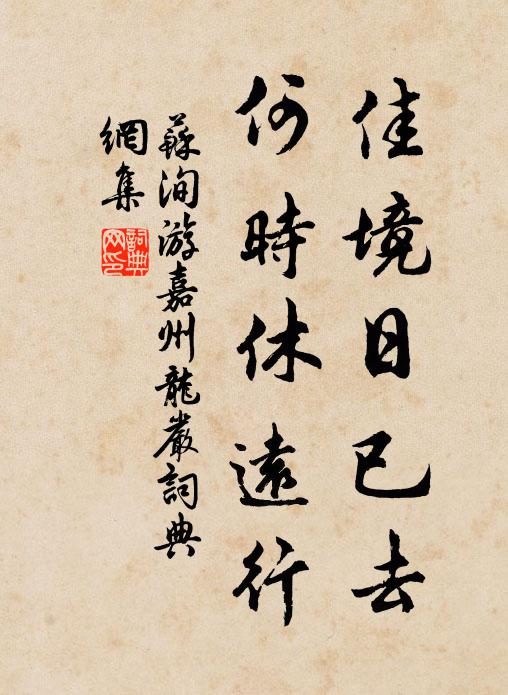 佳境日已去
何時休遠行
蘇洵游嘉州龍巖詞典
網集
詞典網印